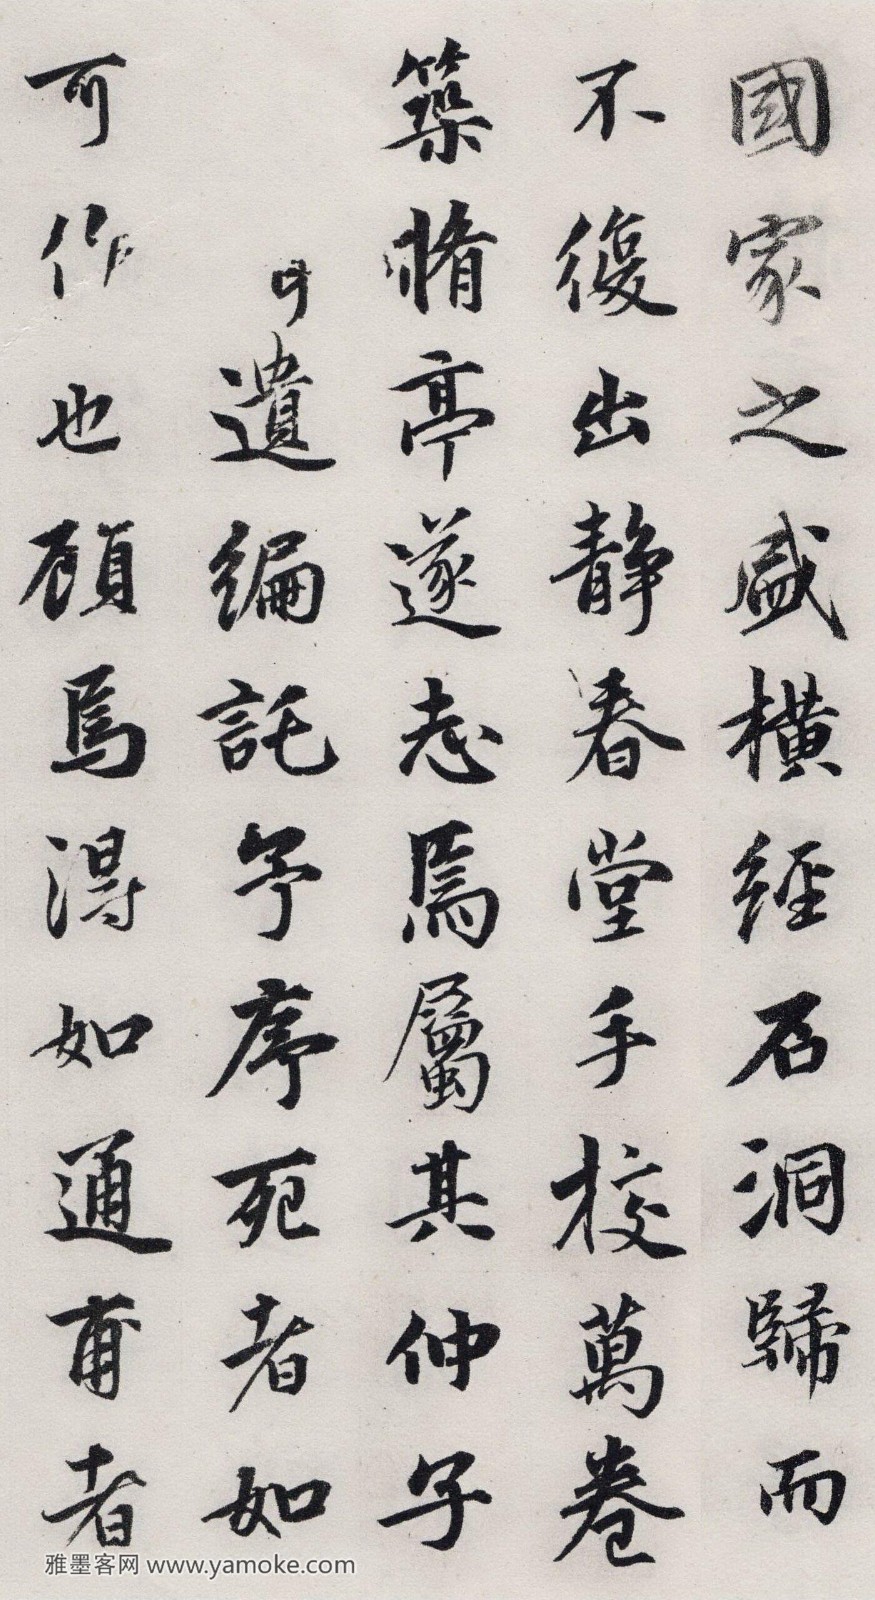 國家之盛橫經石洞歸而
不復出靜春堂手校萬卷
築脩亭遂志焉屬其仲子
遺編託予序死者如
可作也顧焉得如通甫者
雅墨客网 www.yamoke.com